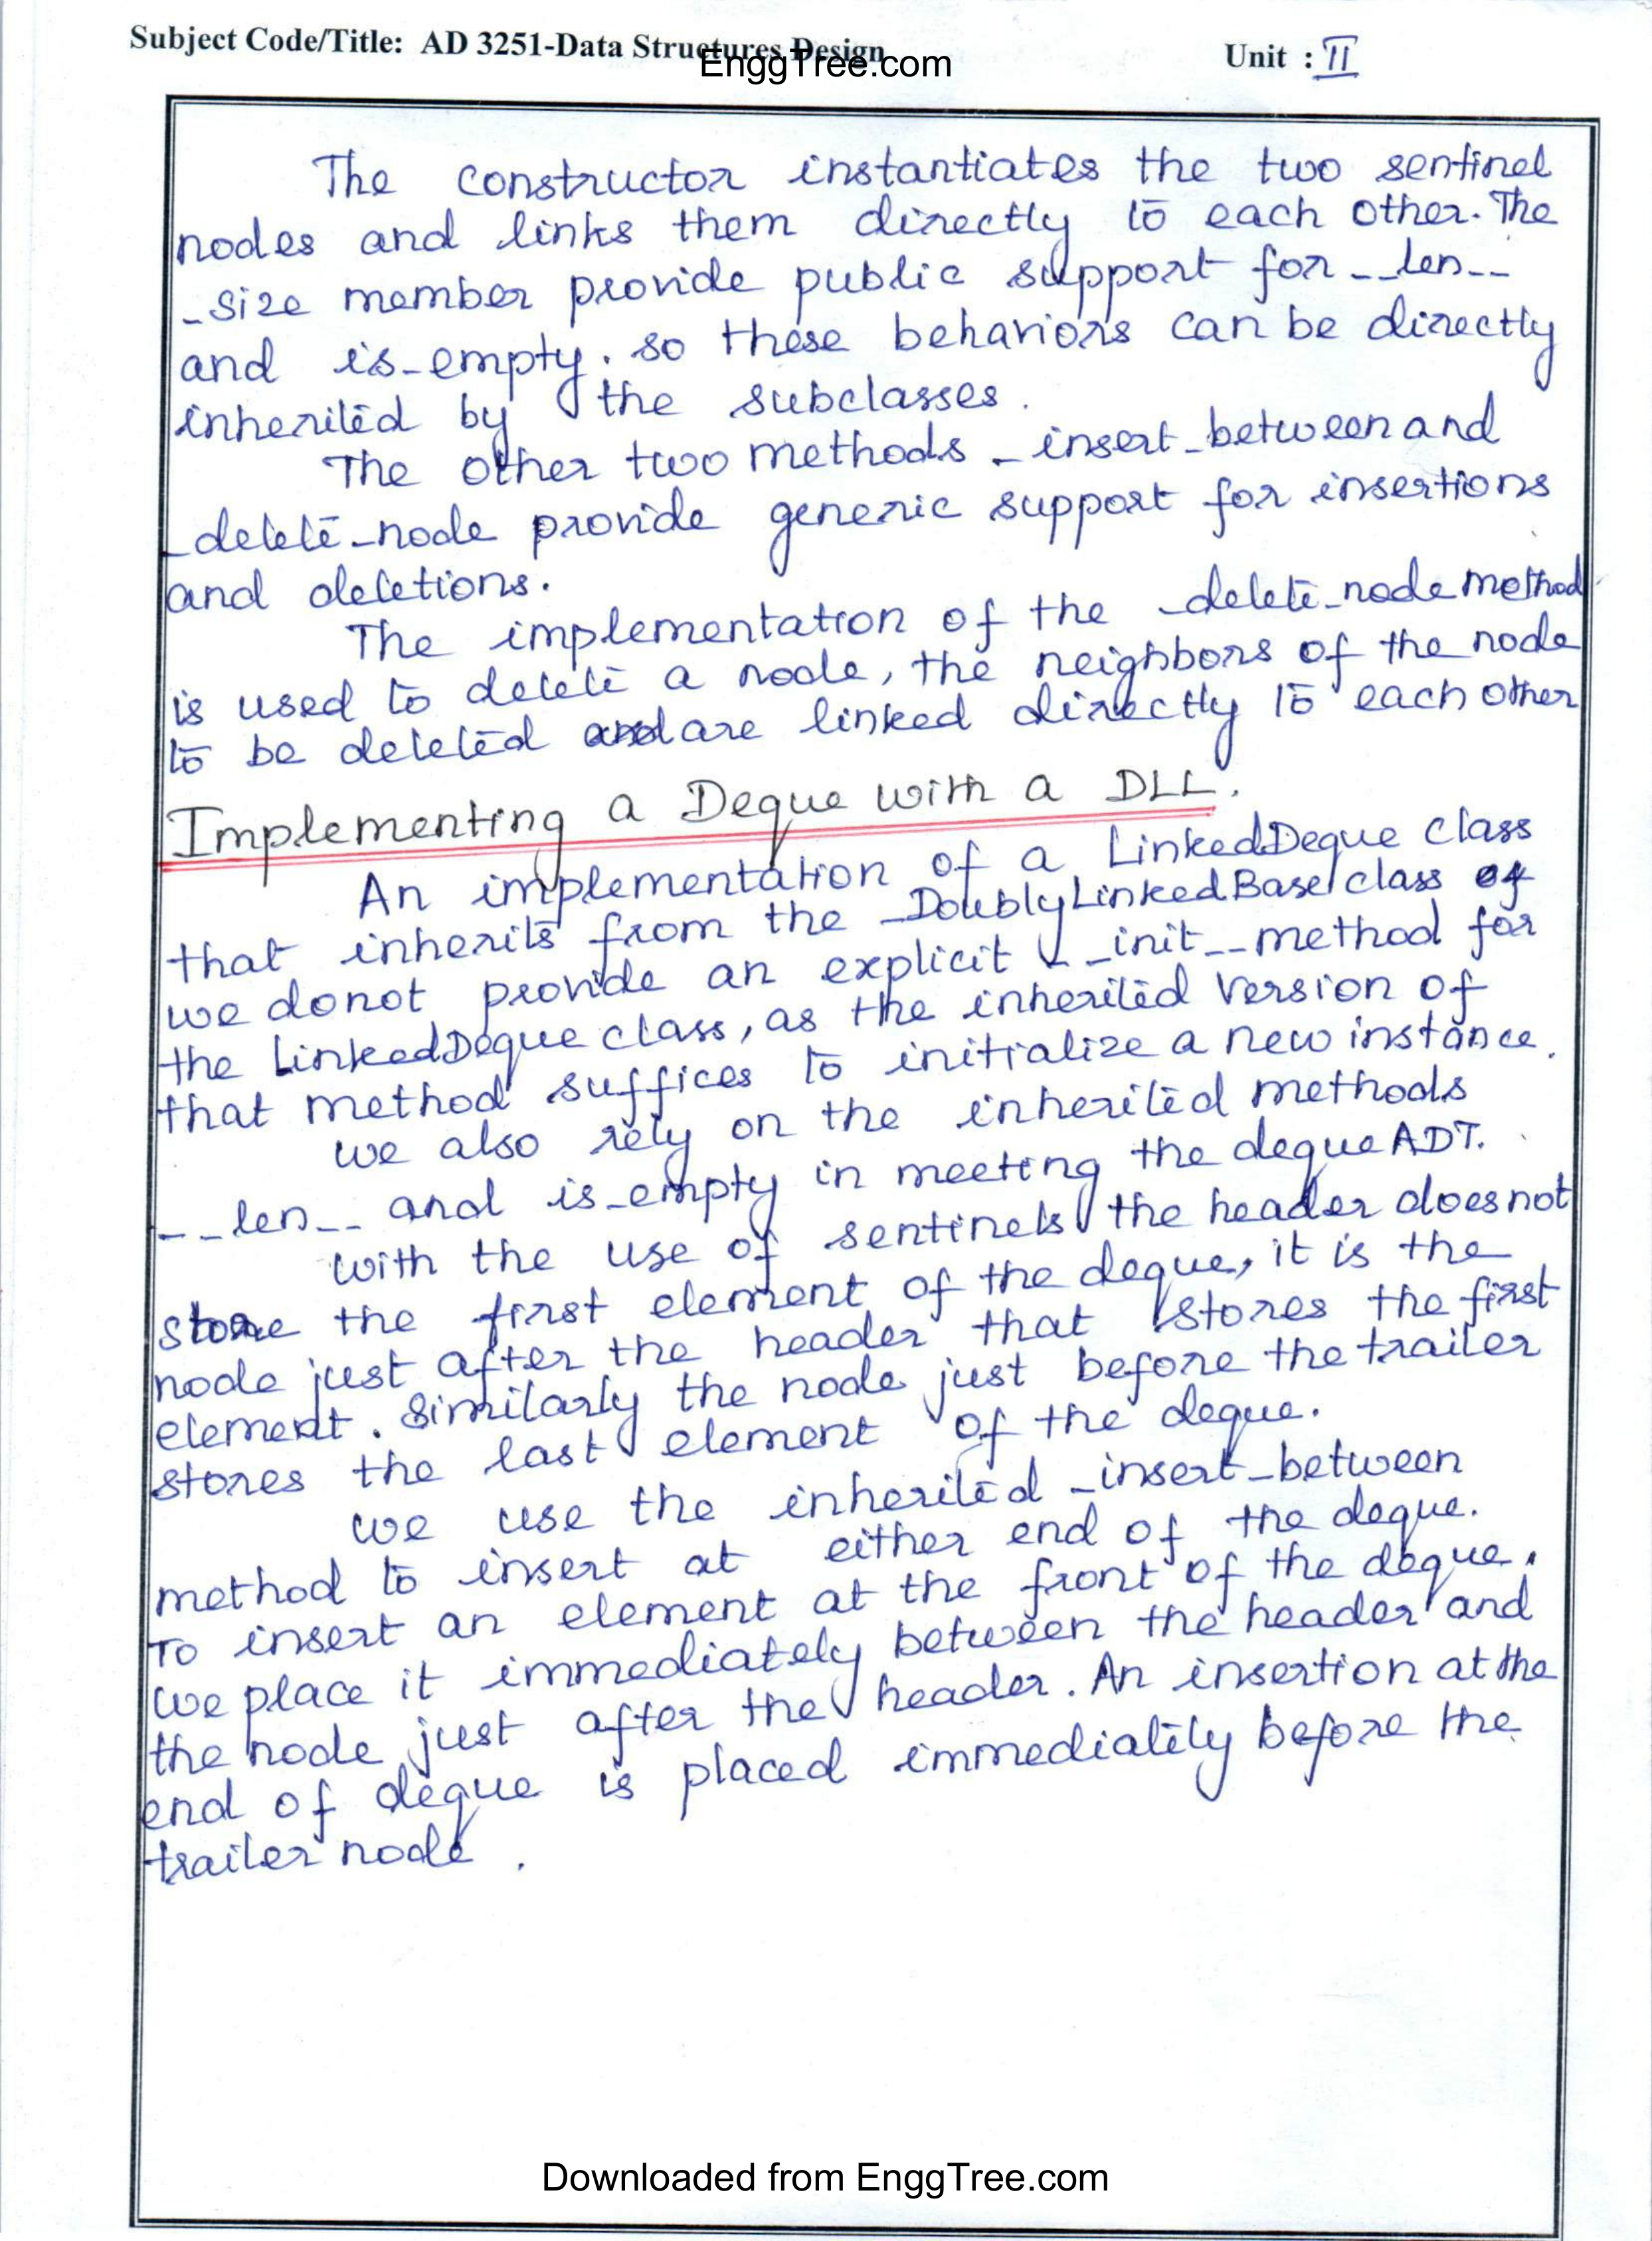 Subject Code/Title: AD 3251-Data Structures Design
EnggTree.com
Unit : II
The constructor instantiates the two sentinel
nodes and links them directly to each other. The
_size member provide public support for __len__
and is_empty. so these behaviors can be directly
inherited by the subclasses.
The other two methods _insert_between and
_delete_node provide generic support for insertions
and deletions.
The implementation of the _delete_node method
is used to delete a node, the neighbors of the node
to be deleted are linked directly to each other
Implementing a Deque with a DLL.
An implementation of a LinkedDeque class
that inherits from the _DoublyLinkedBase class
we donot provide an explicit __init__ method for
the LinkedDeque class, as the inherited version of
that method suffices to initialize a new instance.
we also rely on the inherited methods
__len__ and is_empty in meeting the deque ADT.
with the use of sentinels the header does not
store the first element of the deque, it is the
node just after the header that stores the first
element. Similarly the node just before the trailer
stores the last element of the deque.
we use the inherited _insert_between
method to insert at either end of the deque.
To insert an element at the front of the deque,
we place it immediately between the header and
the node just after the header. An insertion at the
end of deque is placed immediately before the
trailer node.
Downloaded from EnggTree.com